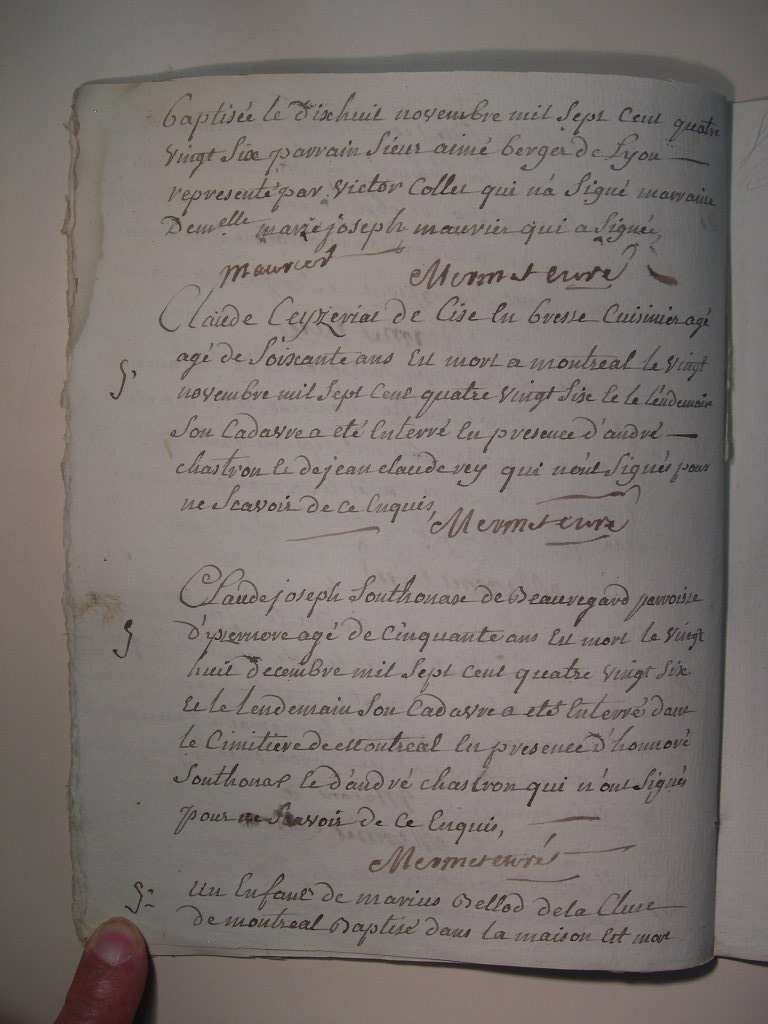 baptisée le dixhuit novembre mil sept cent quatre
vingt six parrain sieur aimé berger de Lyon
representé par victor Collet qui n'a signé marraine
Dem.elle marie joseph maurier qui a signée,
maurier Mermet curé
Claude Ceyzeriat de Cise en bresse Cuisinier agé
agé de soixante ans est mort a montreal le vingt
novembre mil sept cent quatre vingt six et le lendemain
son cadavre a eté enterré en presence d'andré
chastron et de jean claude rey qui n'ont signés pour
ne scavoir de ce enquis,
Mermet curé
Claude joseph Southonax de Beauregard parroisse
d'izernore agé de cinquante ans est mort le vingt
huit decembre mil sept cent quatre vingt six
et le lendemain son cadavre a eté enterré dans
le cimitiere de Montreal en presence d'honnoré
Southonax et d'andré chastron qui n'ont signés
pour ne scavoir de ce enquis,
Mermet curé
un Enfant de marius Bellod de la Cluse
de montreal Baptisé dans la maison est mort